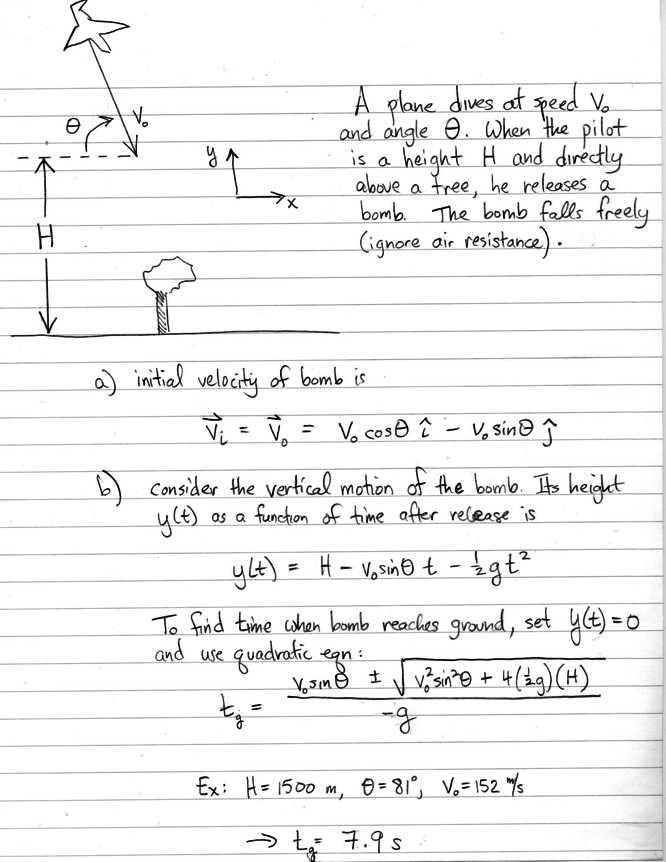 θ
V₀
H
y
x
A plane dives at speed V₀
and angle θ. When the pilot
is a height H and directly
above a tree, he releases a
bomb. The bomb falls freely
(ignore air resistance).
a) initial velocity of bomb is
v⃗ᵢ = v⃗₀ = V₀ cosθ î − V₀ sinθ ĵ
b) consider the vertical motion of the bomb. Its height
y(t) as a function of time after release is
y(t) = H − V₀sinθ t − ½gt²
To find time when bomb reaches ground, set y(t) = 0
and use quadratic eqn:
t_g = (V₀sinθ ± √(V₀²sin²θ + 4(½g)(H))) / −g
Ex: H = 1500 m, θ = 81°, V₀ = 152 m/s
→ t_g = 7.9 s